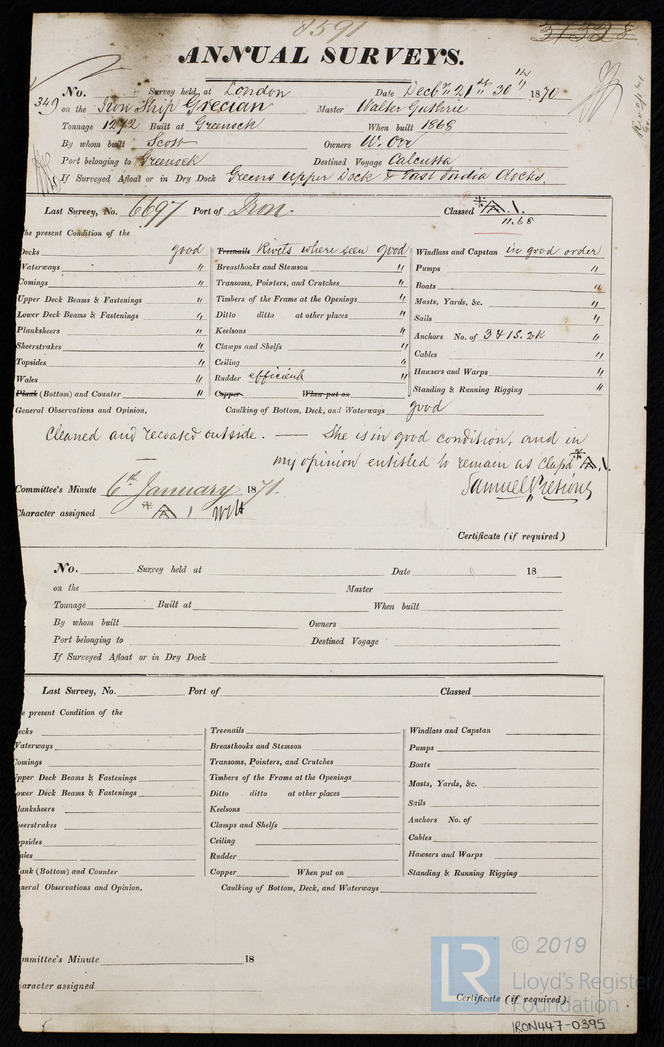 8591
31328
ANNUAL SURVEYS.
349
No. Survey held at London Date Decbr 21st 30th 1870
on the Iron Ship Grecian Master Walter Guthrie
Tonnage 1272 Built at Greenock When built 1868
By whom built Scott Owners W. Orr
Port belonging to Greenock Destined Voyage Calcutta
If Surveyed Afloat or in Dry Dock Greens upper Dock & East India docks.
Last Survey, No. 6697 Port of Iron. Classed A.1.
11.68
he present Condition of the
Decks good
Waterways "
Comings "
Upper Deck Beams & Fastenings "
Lower Deck Beams & Fastenings "
Planksheers "
Sheerstrakes "
Topsides "
Wales "
Plank (Bottom) and Counter "
Treenails Rivets where seen good
Breasthooks and Stemson "
Transoms, Pointers, and Crutches "
Timbers of the Frame at the Openings "
Ditto ditto at other places "
Keelsons "
Clamps and Shelfs "
Ceiling "
Rudder efficient
Copper When put on
Windlass and Capstan in good order
Pumps "
Boats "
Masts, Yards, &c. "
Sails "
Anchors No. of 3 4 1S. 2K "
Cables "
Hawsers and Warps "
Standing & Running Rigging "
General Observations and Opinion, Caulking of Bottom, Deck, and Waterways good
Cleaned and recoated outside. — She is in good condition, and in
my opinion entitled to remain as Clasd A.1.
Committee's Minute 6th January 1871.
Samuel Pretious
Character assigned A 1
Certificate (if required)
No. Survey held at Date 18
on the Master
Tonnage Built at When built
By whom built Owners
Port belonging to Destined Voyage
If Surveyed Afloat or in Dry Dock
Last Survey, No. Port of Classed
e present Condition of the
ecks
Waterways
omings
pper Deck Beams & Fastenings
ower Deck Beams & Fastenings
lanksheers
eerstrakes
psides
ales
ank (Bottom) and Counter
Treenails
Breasthooks and Stemson
Transoms, Pointers, and Crutches
Timbers of the Frame at the Openings
Ditto ditto at other places
Keelsons
Clamps and Shelfs
Ceiling
Rudder
Copper When put on
Windlass and Capstan
Pumps
Boats
Masts, Yards, &c.
Sails
Anchors No. of
Cables
Hawsers and Warps
Standing & Running Rigging
neral Observations and Opinion, Caulking of Bottom, Deck, and Waterways
mmittee's Minute 18
aracter assigned
Certificate (if required)
LR © 2019
Lloyd's Register
Foundation
IRON447-0395